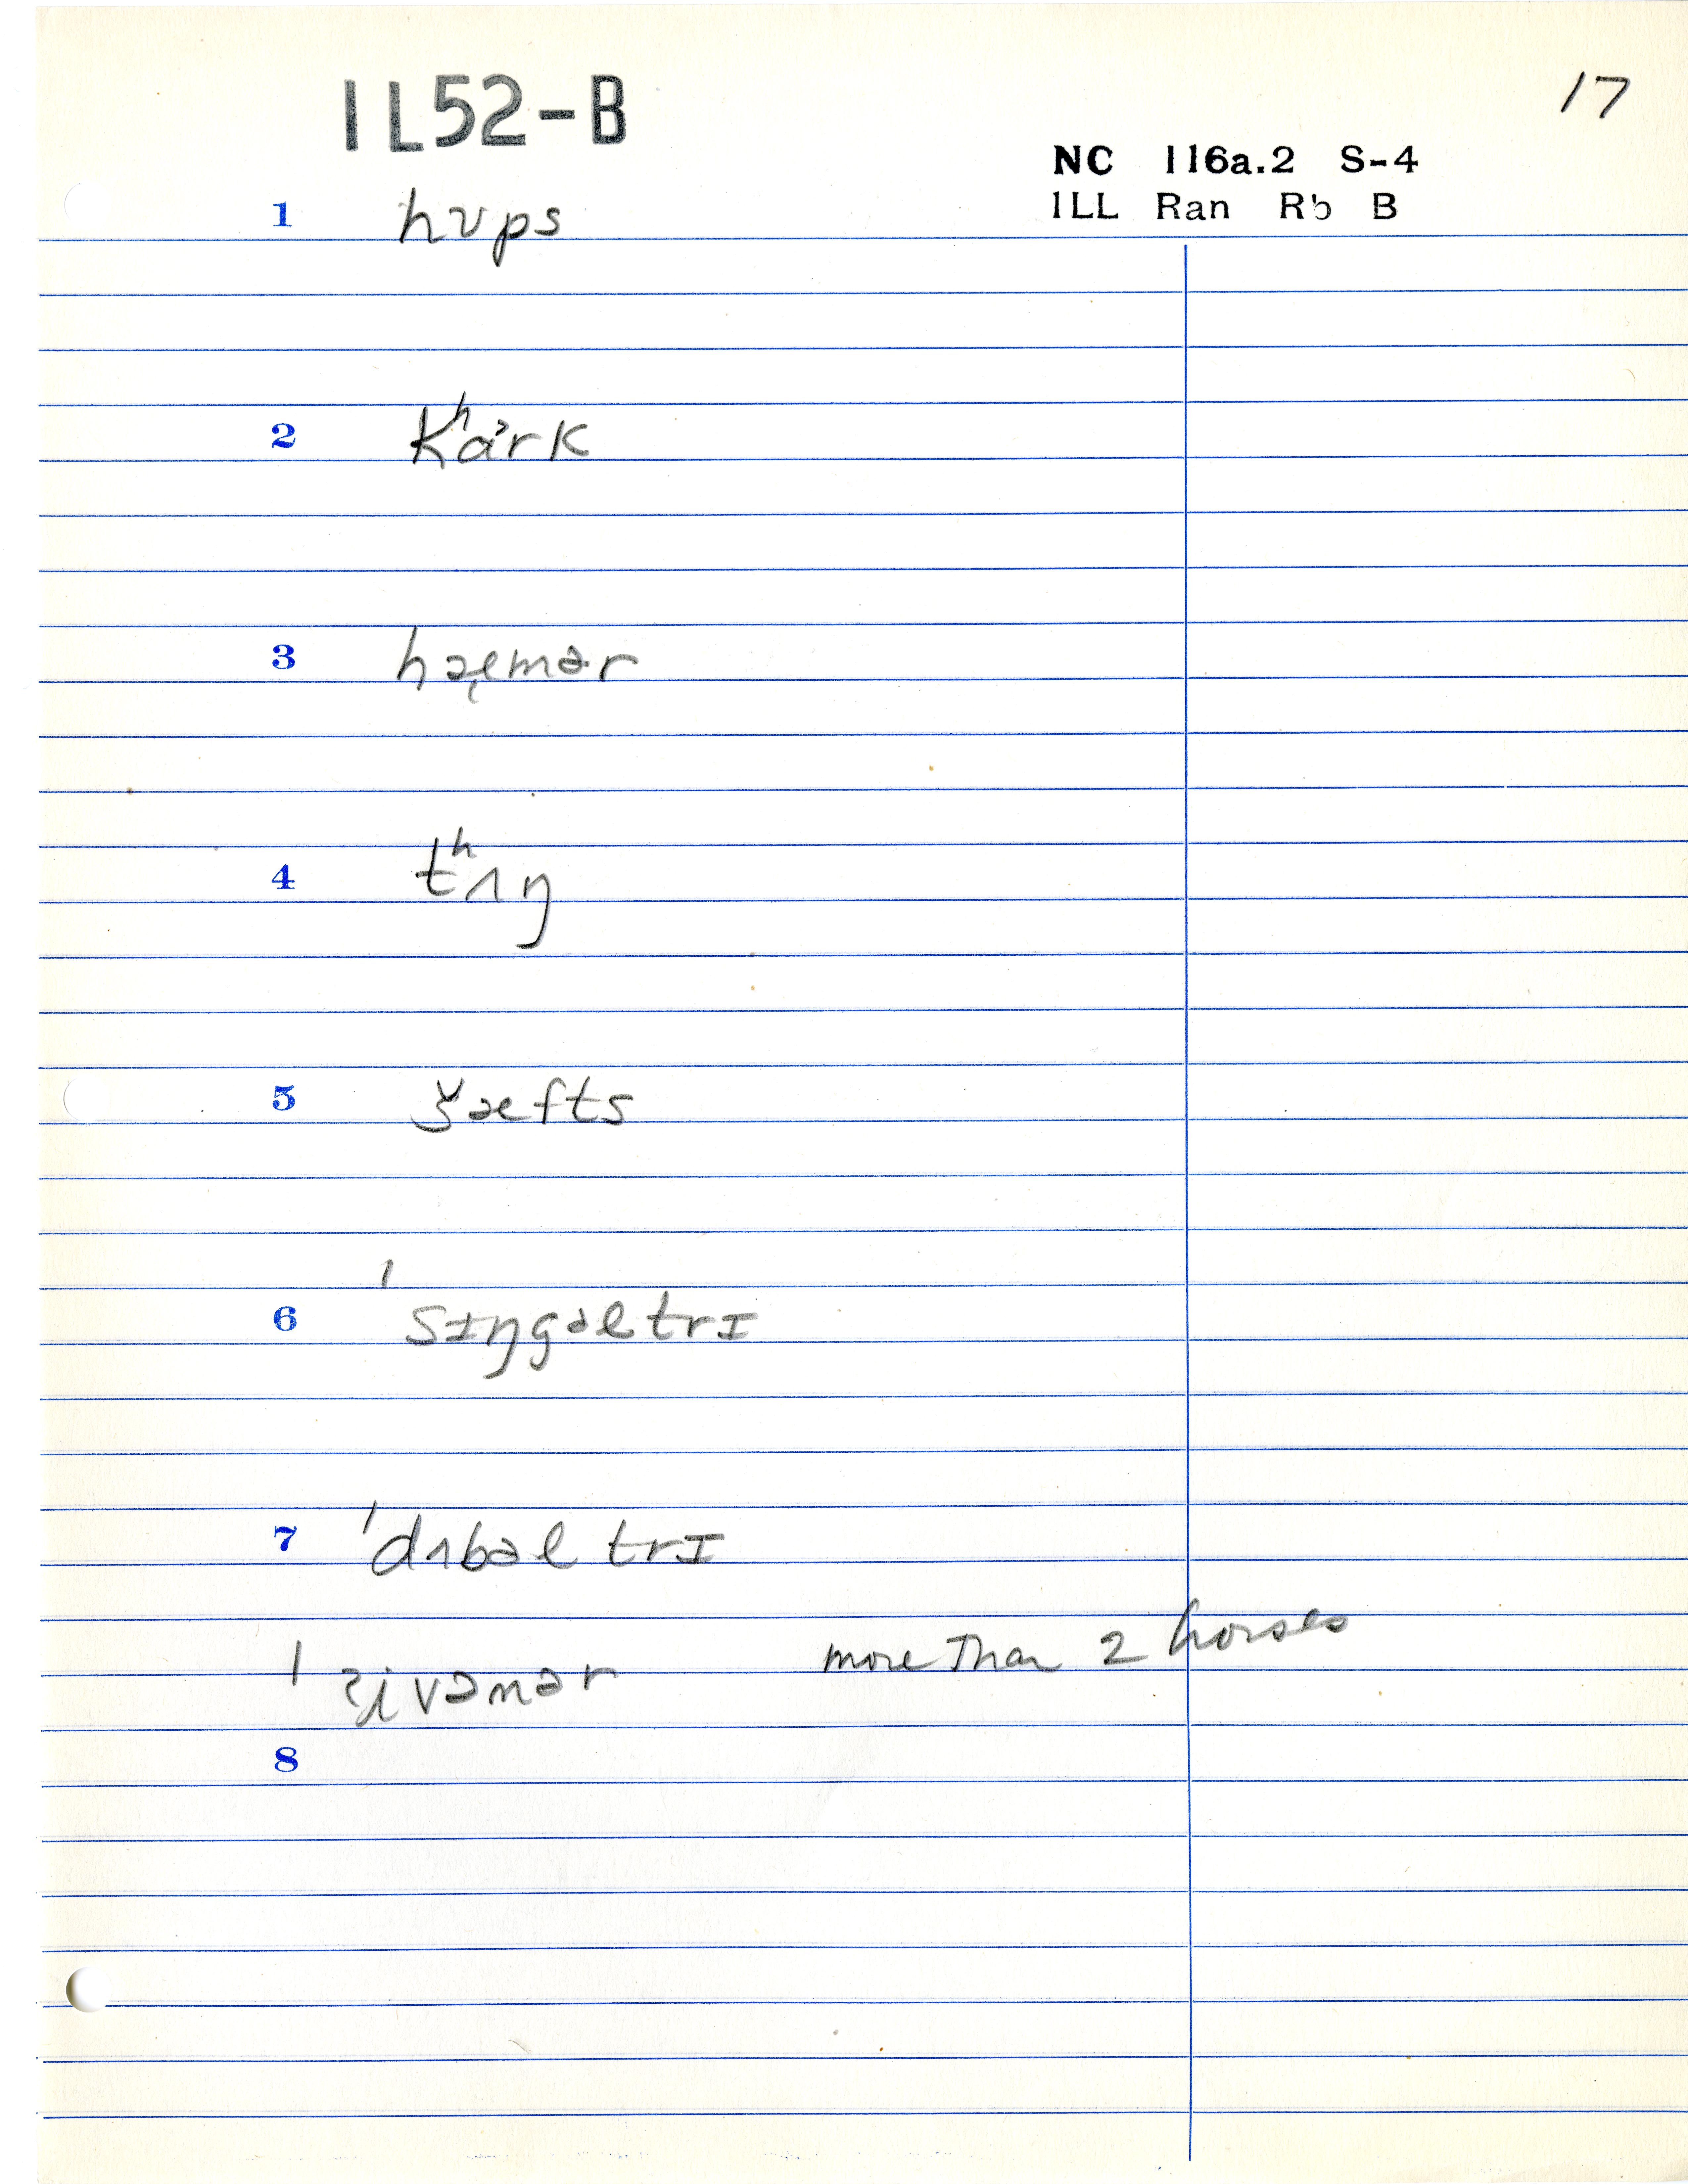 1L52-B
17
NC 116a.2 S-4
ILL Ran Rb B
1 hʊps
2 kʰa˃rk
3 hæ̨mər
4 tʰʌŋ
5 š̬æfts
6 'sɪŋgəltrɪ
7 'dʌbəl trɪ
more than 2 horses
8